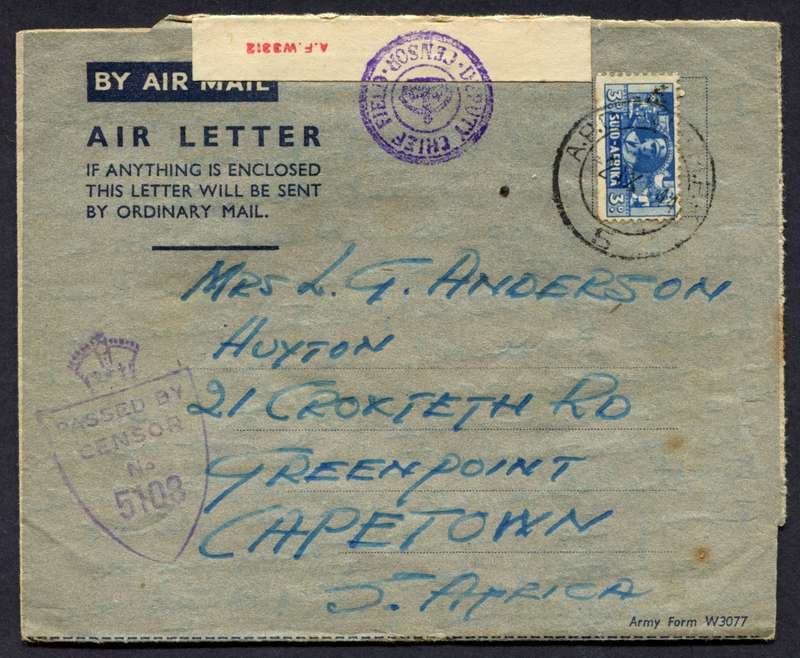 A.F.W3812
BY AIR MAIL
DEPUTY CHIEF FIELD CENSOR
AIR LETTER
IF ANYTHING IS ENCLOSED
THIS LETTER WILL BE SENT
BY ORDINARY MAIL.
3D SUID-AFRIKA 3D
5
MRS L. G. ANDERSON
HUYTON
21 CROXTETH RD
GREENPOINT
CAPETOWN
S. AFRICA
PASSED BY
CENSOR
No
5103
Army Form W3077